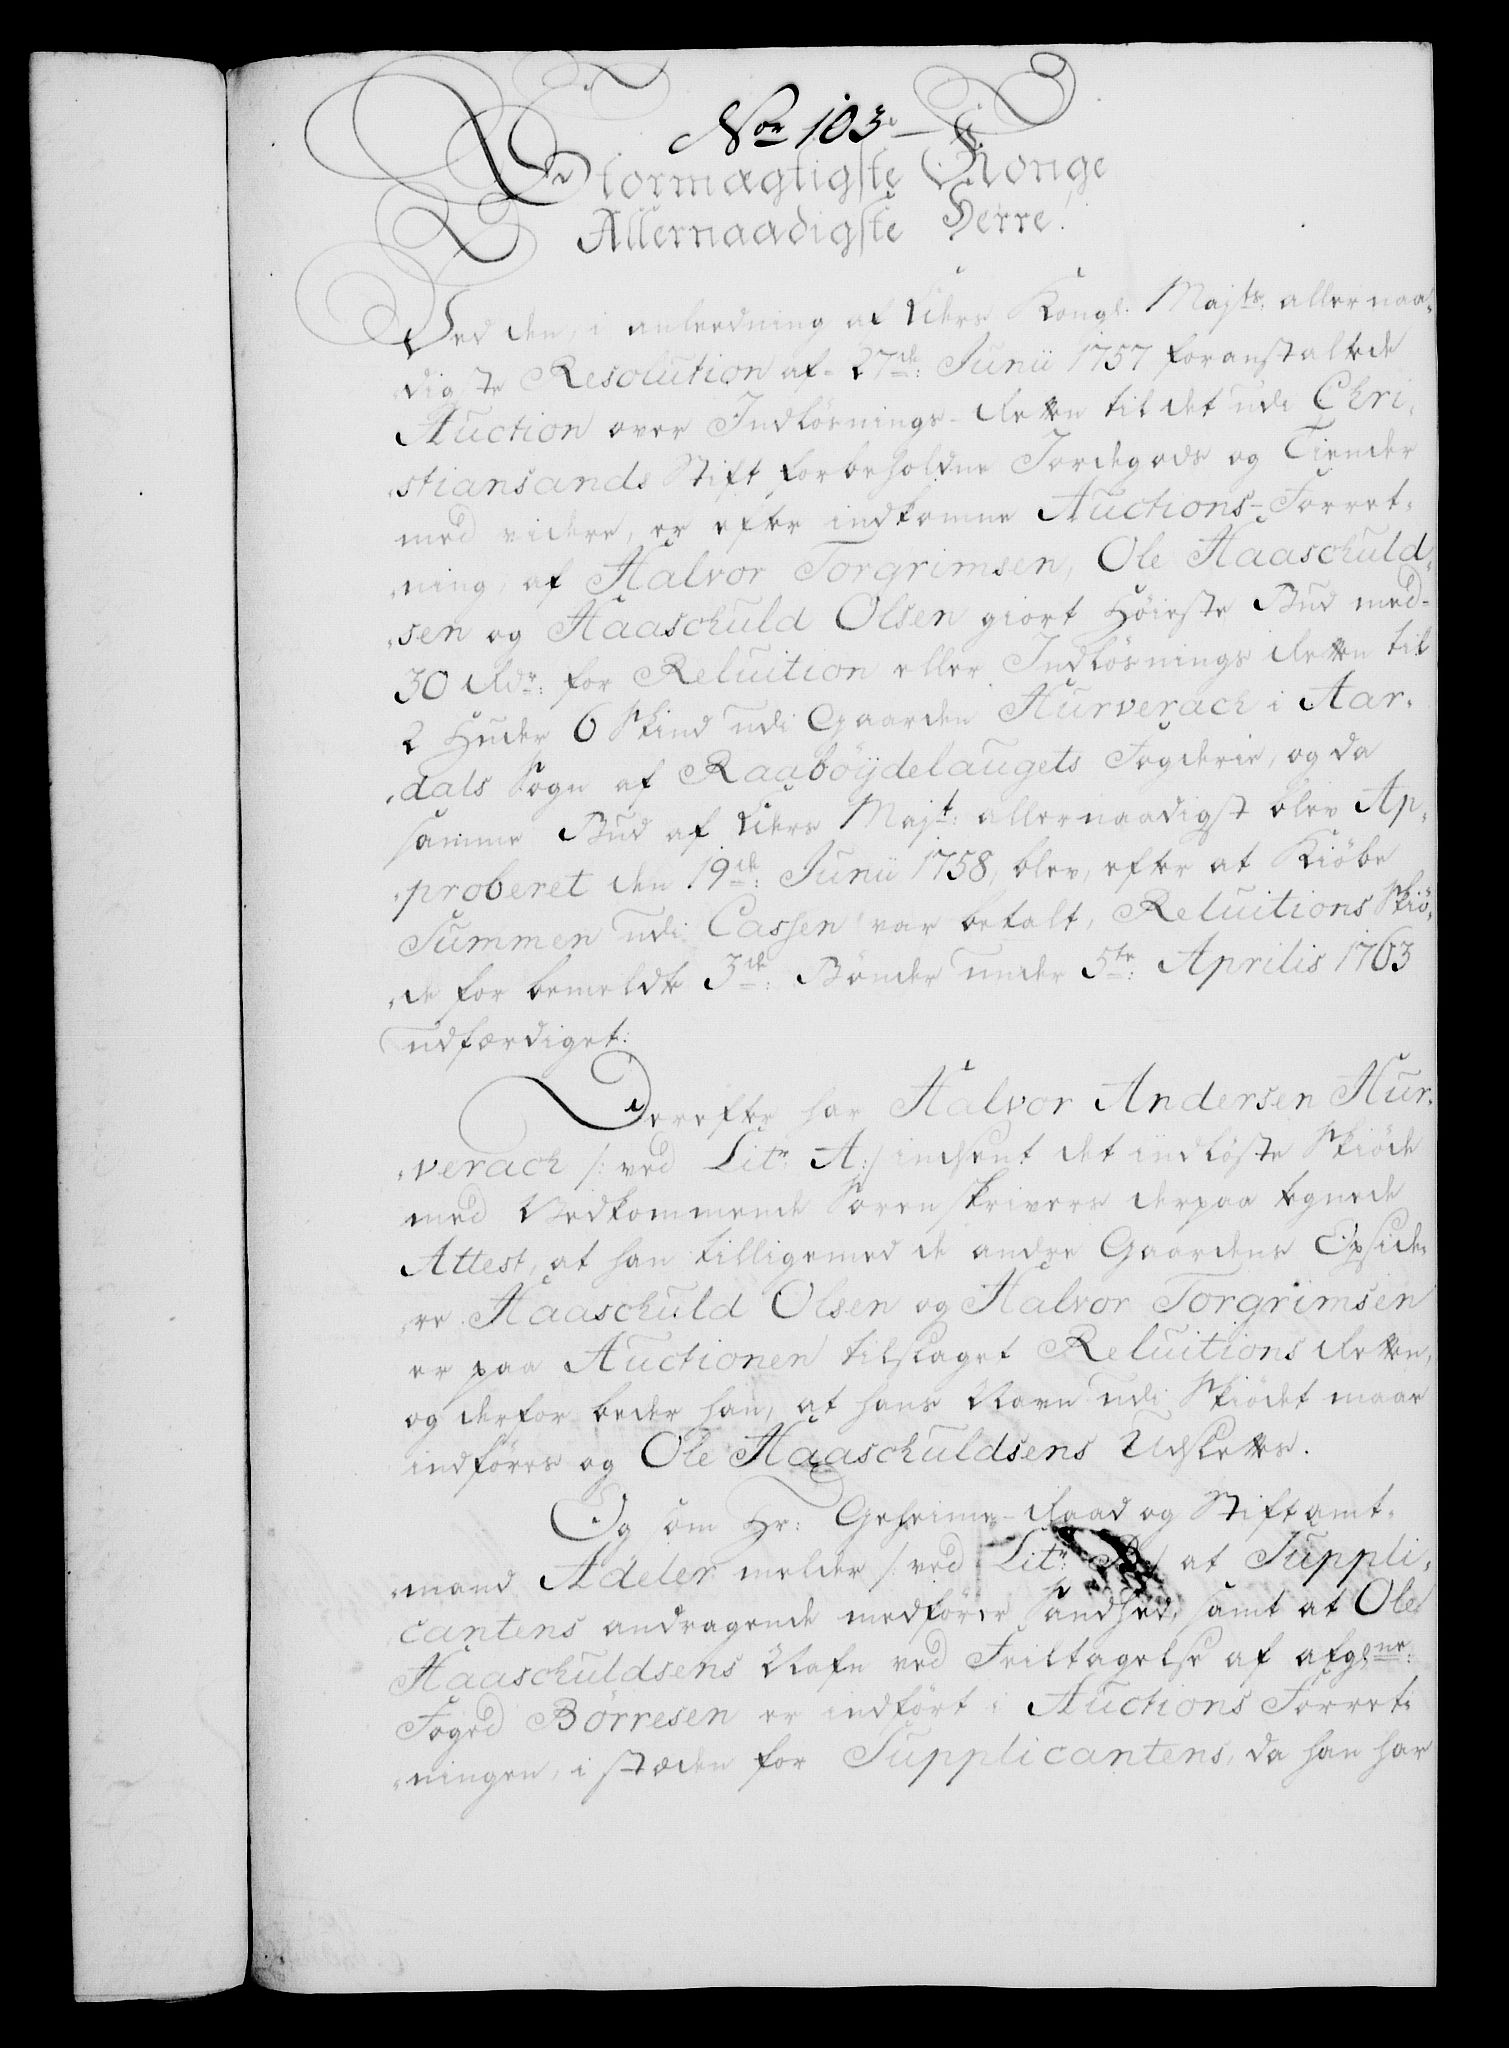 No 103
Stormægtigste Konge
Allernaadigste Herre!
Ved den, i anledning af Eders Kongl: Majts: allernaa-
digste Resolution af 27de: Junii 1757 foranstaltede
Auction over Indløsnings-Retten til det udi Chri-
stiansands Stift forbeholdne Jordegods og Tiender
med videre, er efter indkomne Auctions-Forret-
ning, af Halvor Torgrimsen, Ole Haaschuld-
sen og Haaschuld Olsen giort Høieste Bud med
30 Rdr: for Reluition eller Indløsnings Retten til
2 Huder 6 Skind udi Gaarden Hurverach i Aar-
dals Sogn af Raabøydelaugets Fogderie, og da
samme Bud af Eders Majt: allernaadigst blev Ap-
proberet den 19de: Junii 1758, blev, efter at Kiøbe
Summen udi Cassen var betalt, Reluitions Skiø-
de for bemeldte 3de: Bønder under 5te: Aprilis 1763
udfærdiget.
Derefter har Halvor Andersen Hur-
verach /: ved Litr: A :/ indsent det indløste Skiøde
med Vedkommende Sorenskrivers derpaa tegnede
Attest, at han tilligemed de andre Gaardens Opside-
re Haaschuld Olsen og Halvor Torgrimsen
er paa Auctionen tilslaget Reluitions Retten,
og derfor beder han, at hans Navn udi Skiødet maae
indføres og Ole Haaschuldsens Udslettes.
Og som Hr: Geheime-Raad og Stiftamt-
mand Adeler melder /: ved Litr: B :/ at Suppli-
cantens andragende medfører Sandhed, samt at Ole
Haaschuldsens Nafn ved Feiltagelse af afgl:ne
Foged Børresen er indført i Auctions Forret-
ningen, i stæden for Supplicantens, da han har